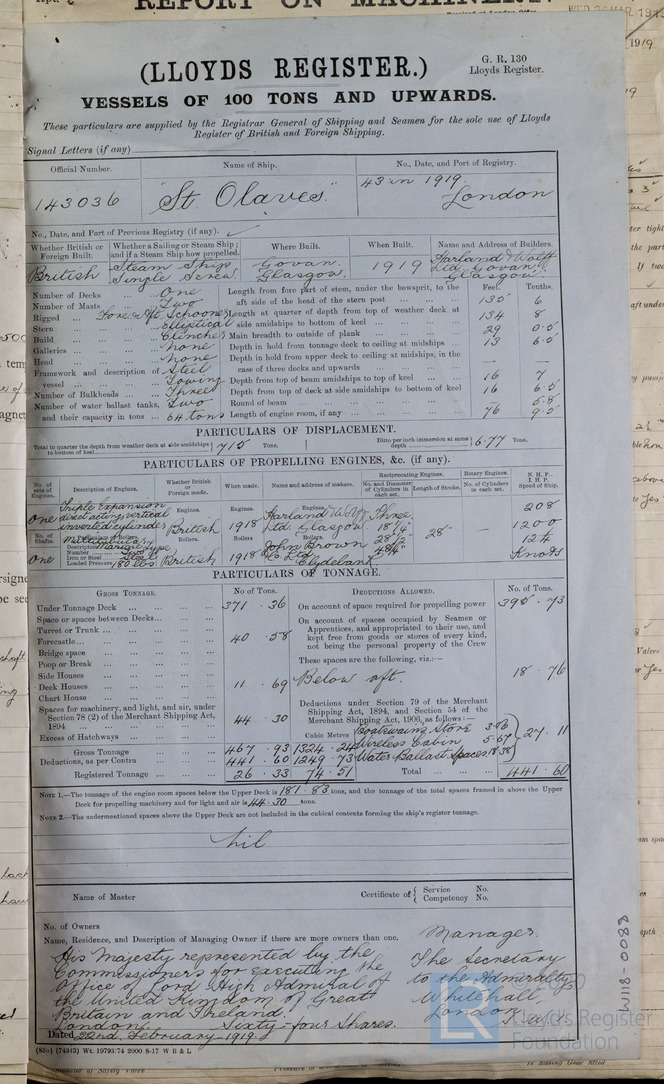 REPORT ON MACHINERY
(LLOYDS REGISTER.)
G. R. 130
Lloyds Register.
VESSELS OF 100 TONS AND UPWARDS.
These particulars are supplied by the Registrar General of Shipping and Seamen for the sole use of Lloyds
Register of British and Foreign Shipping.
Signal Letters (if any)
Official Number. Name of Ship. No., Date, and Port of Registry.
143036 "St. Olaves" 43 in 1919. London
No., Date, and Port of Previous Registry (if any).
Whether British or Foreign built. Whether a Sailing or Steam Ship; and if a Steam Ship how propelled. Where Built. When Built. Name and Address of Builders.
British Steam Ship Single Screw. Govan. Glasgow. 1919 Harland & Wolff Ltd. Govan, Glasgow
Feet. Tenths.
Number of Decks One Length from fore part of stem, under the bowsprit, to the
Number of Masts Two aft side of the head of the stern post 135 6
Rigged Fore & Aft Schooner Length at quarter of depth from top of weather deck at
Stern Elliptical side amidships to bottom of keel 134 8
Build Clincher Main breadth to outside of plank 29 0.5
Galleries None Depth in hold from tonnage deck to ceiling at midships 13 6.5
Head None Depth in hold from upper deck to ceiling at midships, in the
Framework and description of Steel case of three decks and upwards — —
vessel Towing Depth from top of beam amidships to top of keel 16 7
Number of Bulkheads Three Depth from top of deck at side amidships to bottom of keel 16 6.5
Number of water ballast tanks, Two Round of beam 5.8
and their capacity in tons 64 tons Length of engine room, if any 76 9.5
PARTICULARS OF DISPLACEMENT.
Total to quarter the depth from weather deck at side amidships to bottom of keel 715 Tons. Ditto per inch immersion at same depth 6.77 Tons.
PARTICULARS OF PROPELLING ENGINES, &c. (if any).
No. of sets of Engines. Description of Engines. Whether British or Foreign made. When made. Name and address of makers. Reciprocating Engines. No. and Diameter of Cylinders in each set. Length of Stroke. Rotary Engines. No. of Cylinders in each set. N. H. P. I. H. P. Speed of Ship.
One Triple Expansion direct acting vertical inverted cylinders Engines. British Engines. 1918 Engines. Harland & Wolff Ltd. Glasgow Three 18¼" 28½" 28" — 208 1200 12¼ Knots
No. of Shafts. Particulars of Boilers. Boilers. Boilers. Boilers.
One Description Multitubular Marine type Number Iron or Steel Steel Loaded Pressure 180 lbs British 1918 John Brown & Co Ltd. Clydebank
PARTICULARS OF TONNAGE.
GROSS TONNAGE. No. of Tons. DEDUCTIONS ALLOWED. No. of Tons.
Under Tonnage Deck 371 . 36 On account of space required for propelling power 395 . 73
Space or spaces between Decks On account of spaces occupied by Seamen or
Turret or Trunk Apprentices, and appropriated to their use, and
Forecastle 40 . 58 kept free from goods or stores of every kind,
Bridge space not being the personal property of the Crew
Poop or Break These spaces are the following, viz.:—
Side Houses 18 . 76
Deck Houses 11 . 69 Below aft.
Chart House
Spaces for machinery, and light, and air, under Section 78 (2) of the Merchant Shipping Act, 1894 44 . 30 Deductions under Section 79 of the Merchant Shipping Act, 1894, and Section 54 of the Merchant Shipping Act, 1906, as follows:—
Excess of Hatchways Cubic Metres Boatswains Store 3.06
Gross Tonnage 467 . 93 1324 . 24 Wireless Cabin 5.67 27 . 11
Deductions, as per Contra 441 . 60 1249 . 73 Water Ballast Spaces 18.38
Registered Tonnage 26 . 33 74 . 51 Total 441 . 60
NOTE 1.—The tonnage of the engine room spaces below the Upper Deck is 181.83 tons, and the tonnage of the total spaces framed in above the Upper
Deck for propelling machinery and for light and air is 44.30 tons.
NOTE 2.—The undermentioned spaces above the Upper Deck are not included in the cubical contents forming the ship's register tonnage.
Nil
Name of Master Certificate of { Service No.
Competency No.
No. of Owners
Name, Residence, and Description of Managing Owner if there are more owners than one.
His Majesty represented by the
Commissioners for executing the
Office of Lord High Admiral of
the United Kingdom of Great
Britain and Ireland.
London. Sixty-four Shares.
Manager.
The Secretary
to the Admiralty
Whitehall,
London
Dated 22nd February 1919.
(83o) (74343) Wt. 19793/74 2000 8-17 W B & L
W118-0083
LR
Lloyd's Register
Foundation